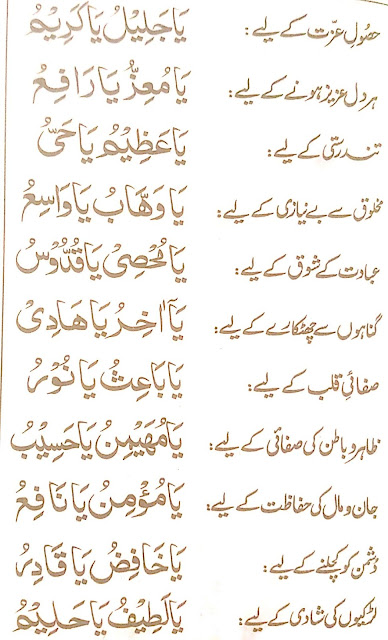 حصُولِ عزّت کے لیے: يَا جَلِيْلُ يَا كَرِيْمُ
ہر دل عزیز ہونے کے لیے: يَا مُعِزُّ يَا رَافِعُ
تندرستی کے لیے: يَا عَظِيْمُ يَا حَىُّ
مخلوق سے بے نیازی کے لیے: يَا وَهَّابُ يَا وَاسِعُ
عبادت کے شوق کے لیے: يَا مُحْصِىْ يَا قُدُّوْسُ
گناہوں سے چھٹکارے کے لیے: يَا اٰخِرُ يَا هَادِىْ
صفائیِ قلب کے لیے: يَا بَاعِثُ يَا نُوْرُ
ظاہر و باطن کی صفائی کے لیے: يَا مُهَيْمِنُ يَا حَسِيْبُ
جان و مال کی حفاظت کے لیے: يَا مُؤْمِنُ يَا نَافِعُ
دشمن کو کچلنے کے لیے: يَا خَافِضُ يَا قَادِرُ
لڑکیوں کی شادی کے لیے: يَا لَطِيْفُ يَا حَلِيْمُ